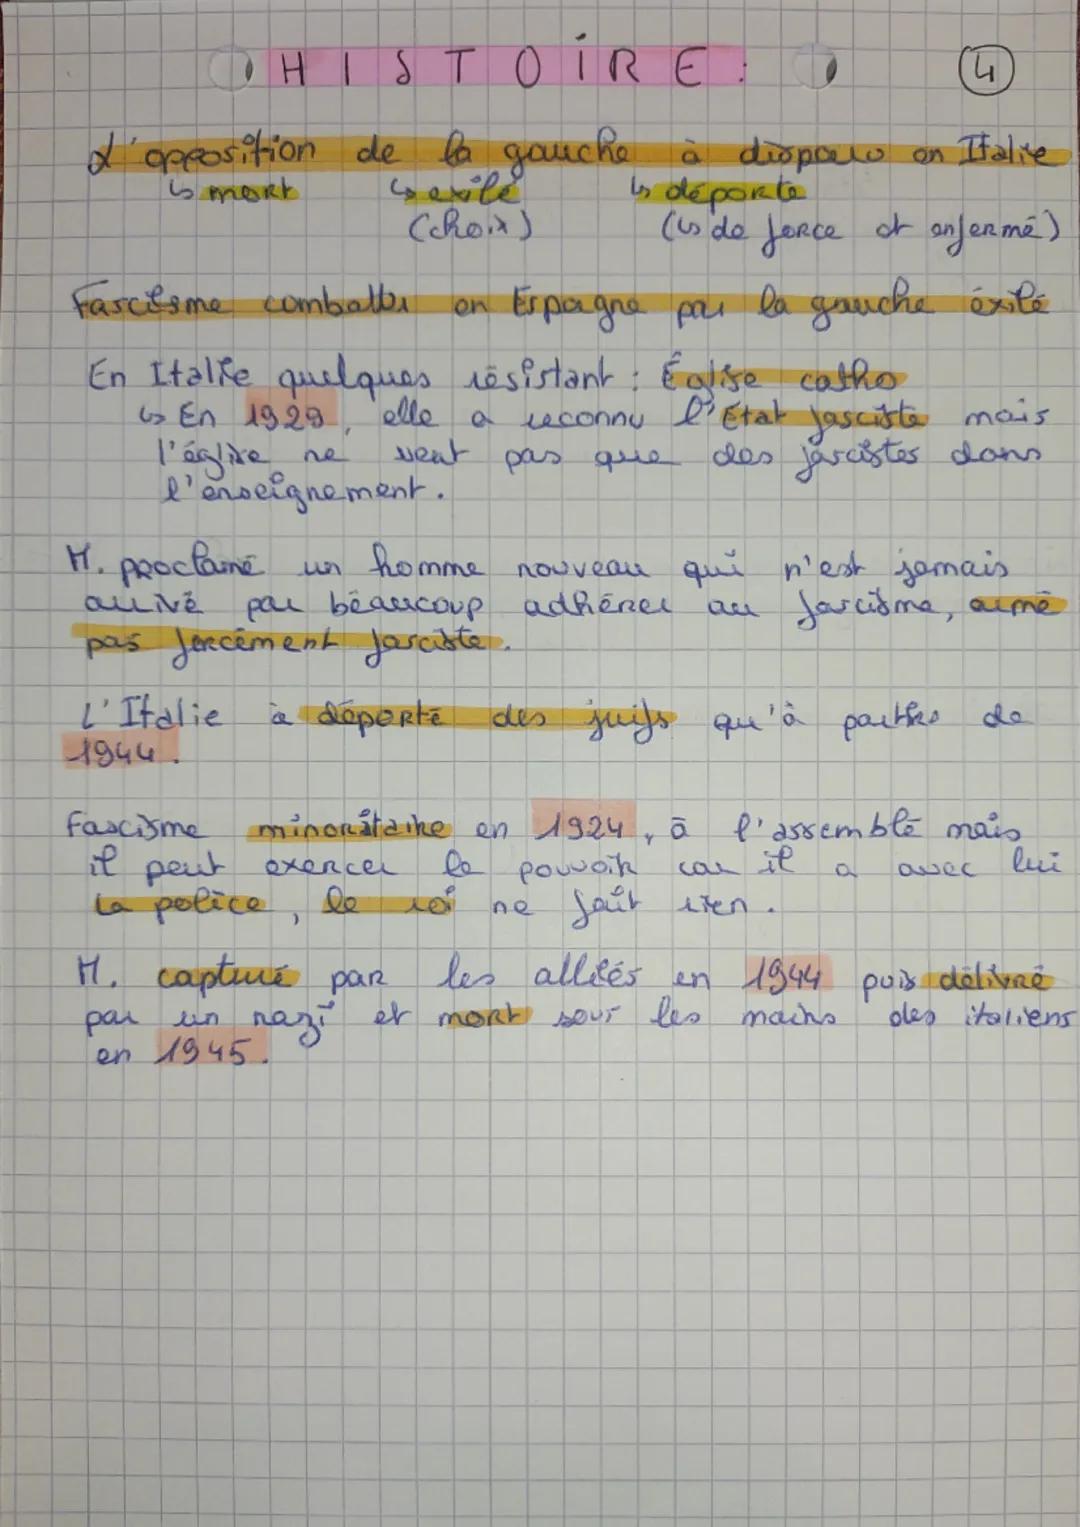 HISTOIRE : 4
L'opposition de la gauche à disparu en Italie
↳ mort ↳ exilé ↳ déporte
(choix) (↳ de force et enfermé)
Fascisme combattu en Espagne par la gauche éxilé
En Italie quelques résistant : Église catho
↳ En 1929, elle a reconnu l'État fasciste mais
l'église ne veut pas que des fascistes dans
l'enseignement.
M. proclamé un homme nouveau qui n'est jamais
arrivé par béaucoup adhérer au fascisme,
pas forcément fasciste.
L'Italie à déporté des juifs qu'à partir de
1944.
Fascisme minoritaire en 1924, à l'assemblé mais
il peut exercer le pouvoir car il a avec lui
la police, le roi ne fait rien.
M. capturé par les alliés en 1944 puis délivré
par un nazi et mort sous les mains des italiens
en 1945.